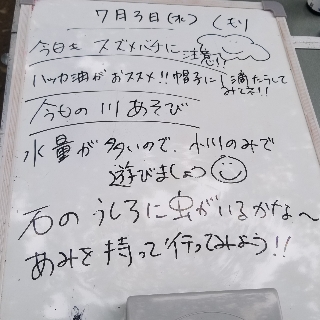 7月3日(水) くもり
今日も スズメバチに注意!!
ハッカ油がおススメ!!帽子に1滴たらして
みてネ!!
今日の川あそび
水量が多いので、小川のみで
遊びましょう
石のうしろに虫がいるかな〜
あみを持って行ってみよう!!